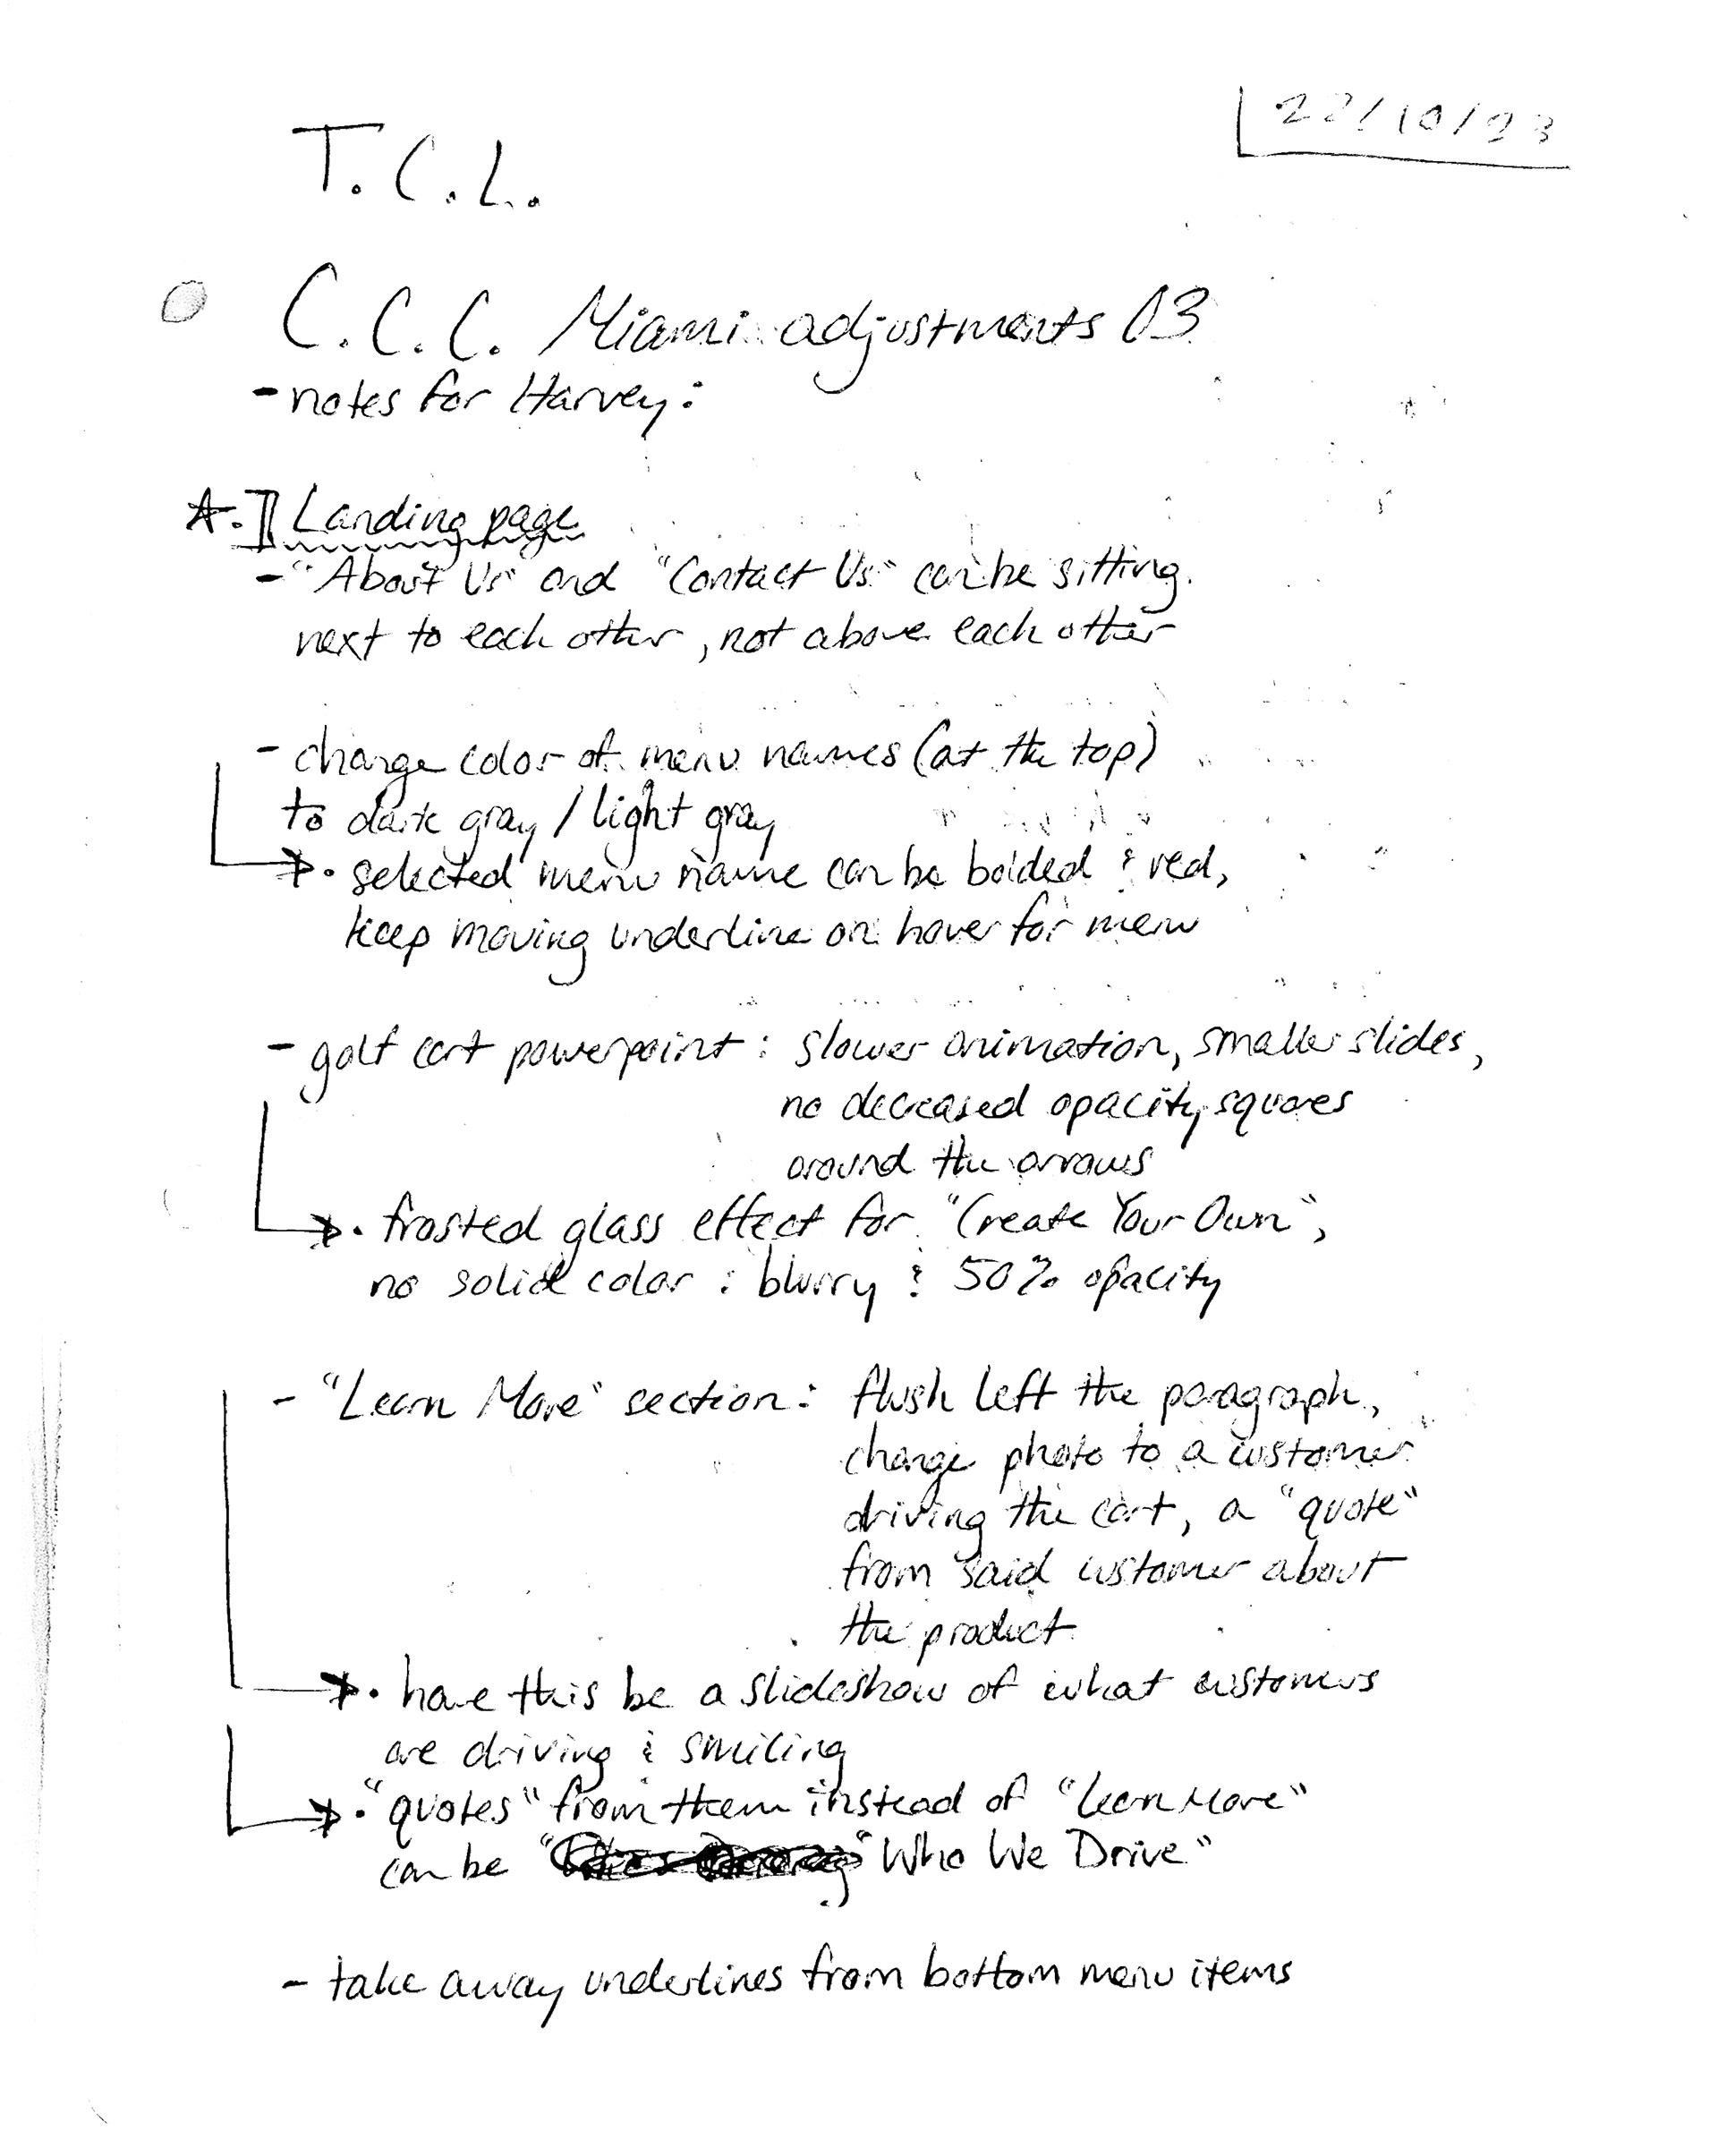 22/10/23
T.C.L.
C.C.C. Miami adjustments 03
- notes for Harvey:
A.] Landing page
- "About Us" and "Contact Us" can be sitting
next to each other, not above each other
- change color of menu names (at the top)
to dark gray / light gray
→ • selected menu name can be bolded & red,
keep moving underline on hover for menu
- golf cart powerpoint: slower animation, smaller slides,
no decreased opacity squares
around the arrows
→ • frosted glass effect for "Create Your Own",
no solid color: blurry & 50% opacity
- "Learn More" section: flush left the paragraph,
change photo to a customer
driving the cart, a "quote"
from said customer about
the product
→ • have this be a slideshow of what customers
are driving & smiling
→ • "quotes" from them instead of "Learn More"
can be "Who We Drive"
- take away underlines from bottom menu items